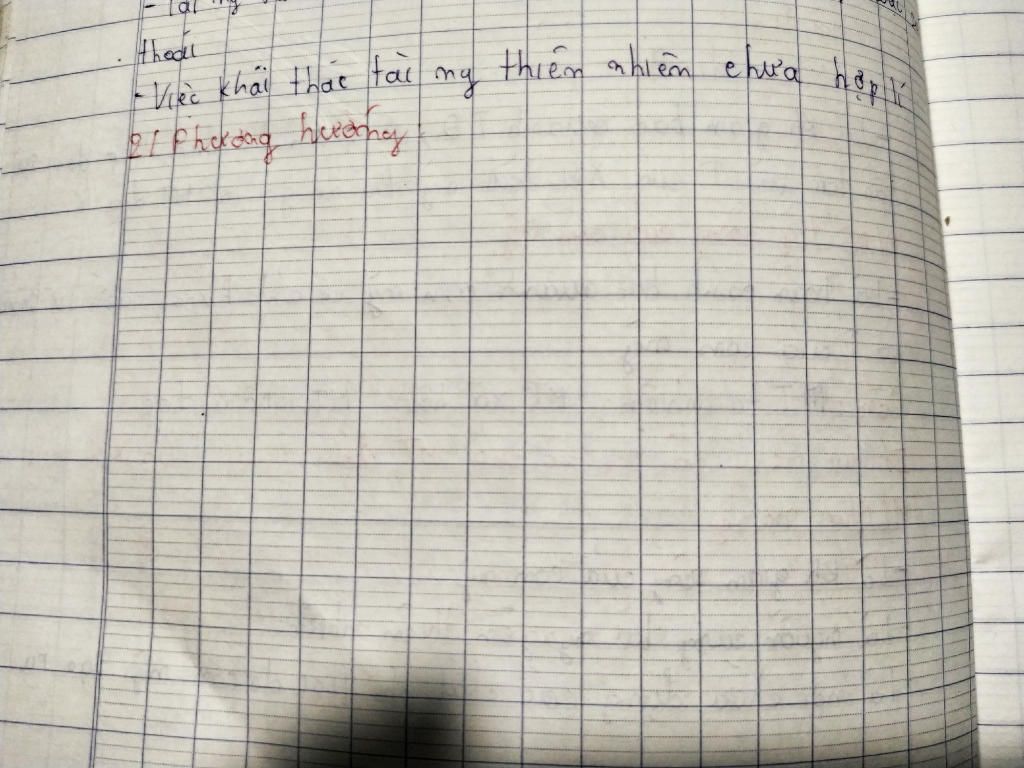 - Tài ng
thoái
- Việc khai thác tài ng thiên nhiên chưa hợp lí
2/ Phương hướng